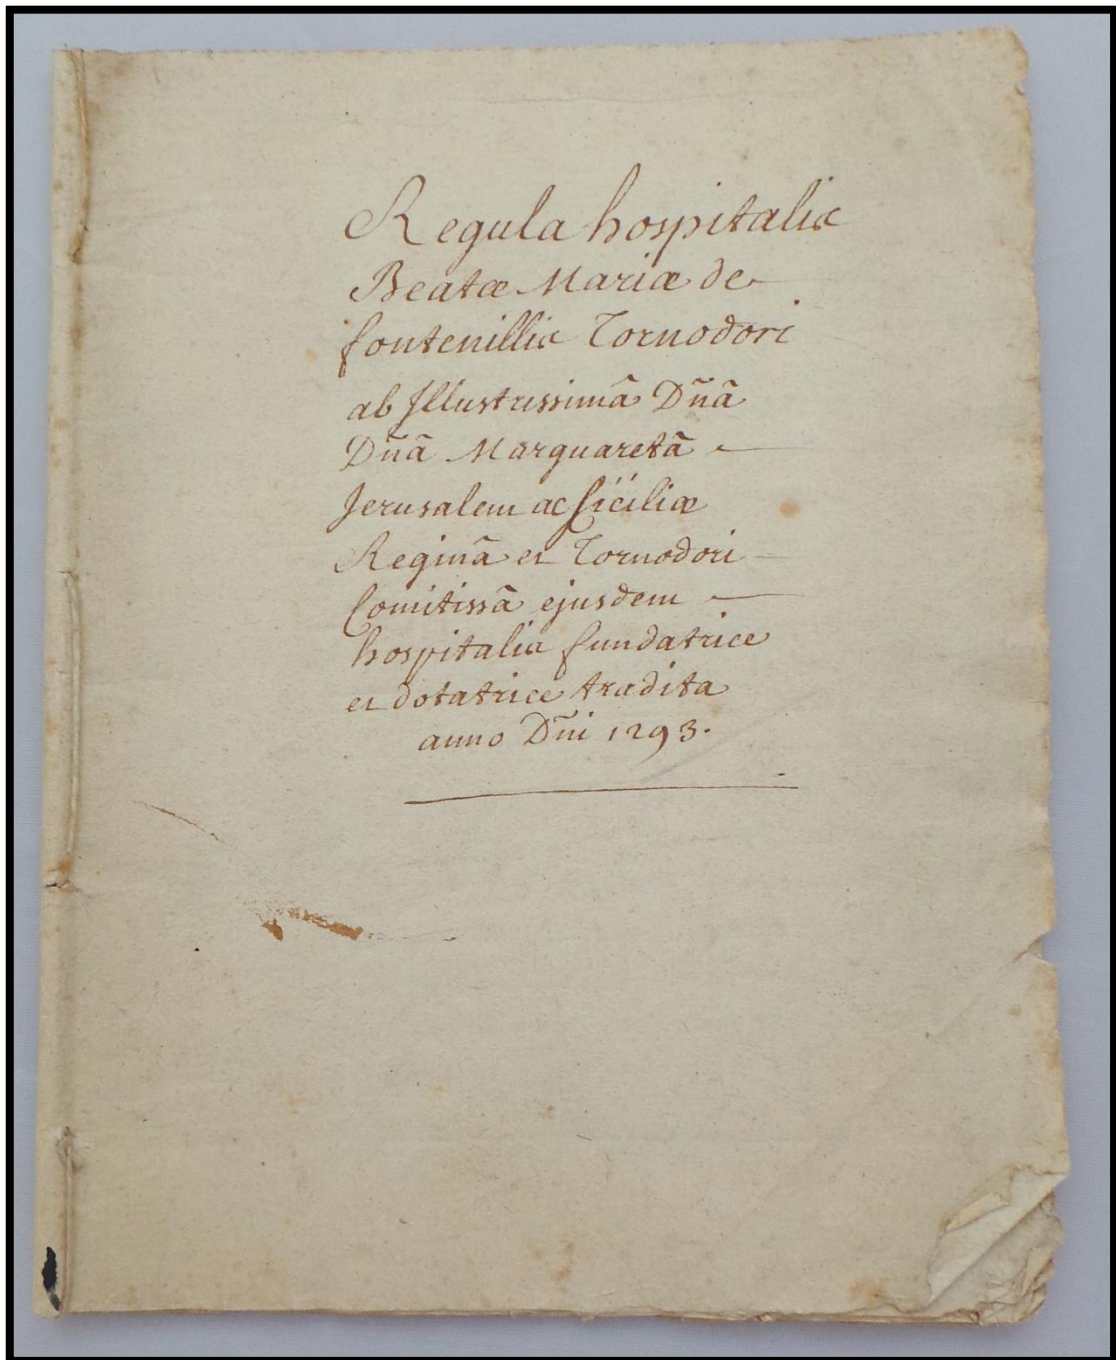 Regula hospitalis
Beatæ Mariæ de
fontenillis Tornodori
ab Illustrissimâ Dñâ
Dñâ Marguaretâ
Jerusalem ac Siciliæ
Reginâ et Tornodori
Comitissâ ejusdem
hospitalis fundatrice
et dotatrice tradita
anno Dñi 1293.